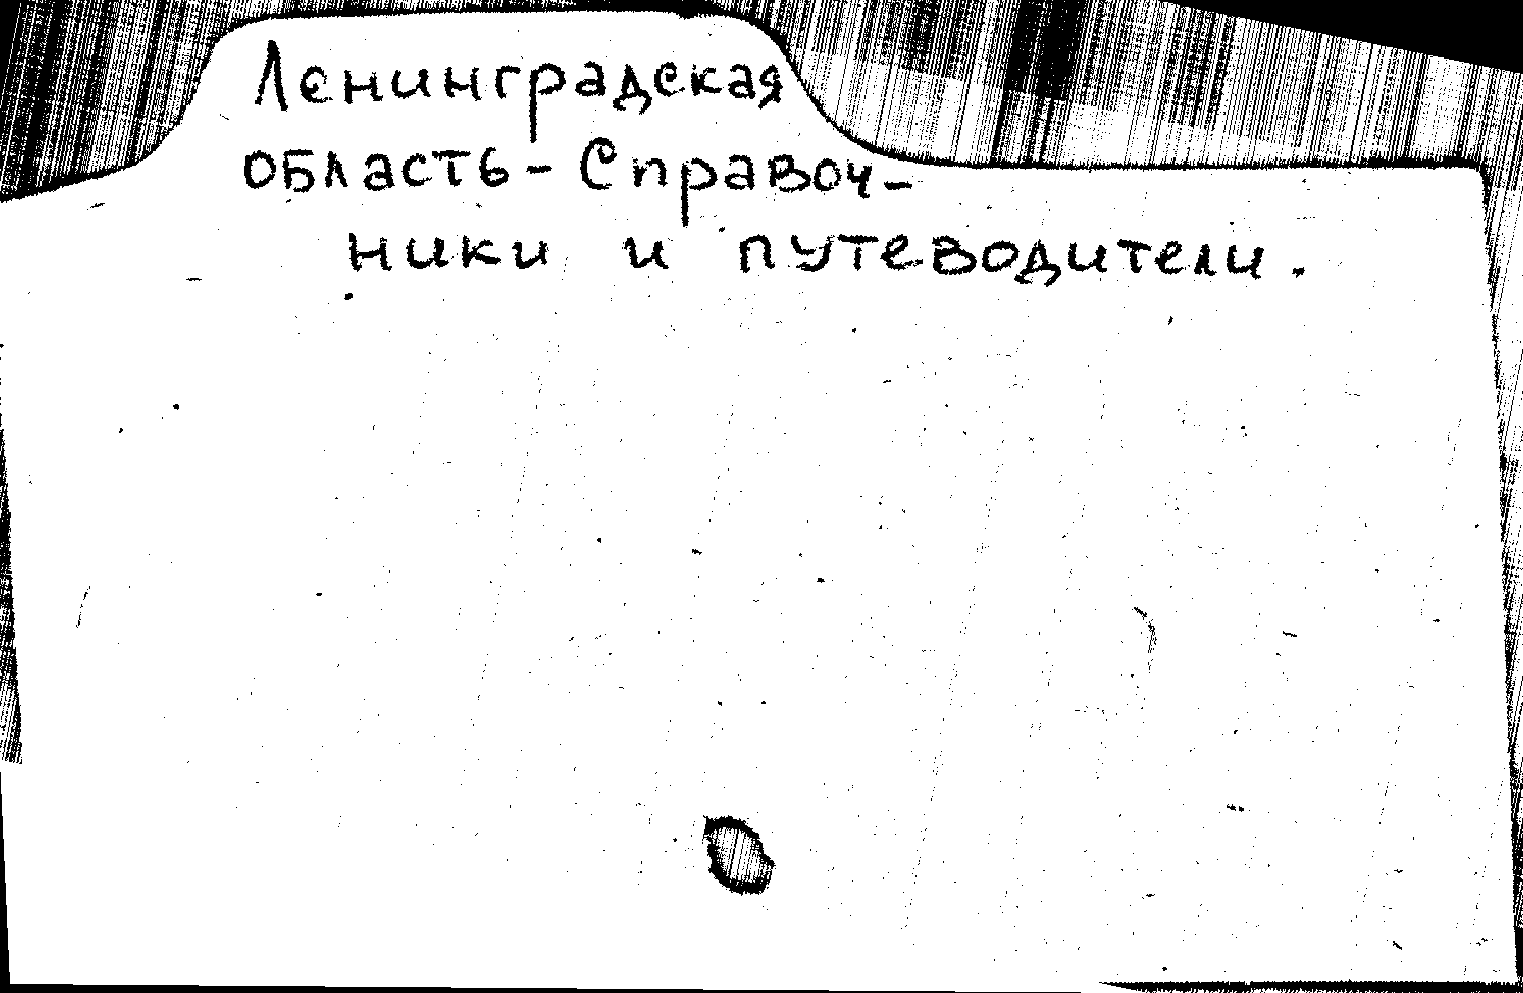 Ленинградская
область - Справоч-
ники и путеводители.